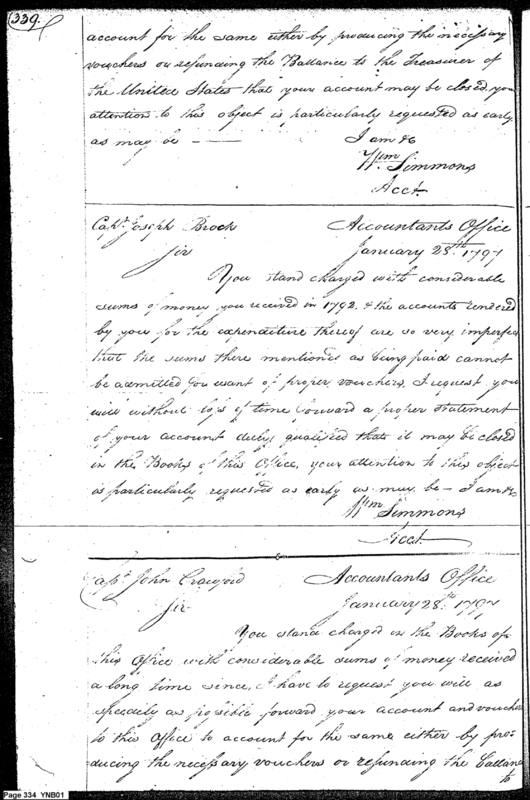 339
account for the same either by producing the necessary
vouchers or refunding the Ballance to the Treasurer of
the United States that your account may be closed, your
attention to this object is particularly requested as early
as may be — I am &c
Wm Simmons
Acct.
Capt. Joseph Brock Accountants Office
Sir January 28th 1797
You stand charged with considerable
sums of money you received in 1792, & the accounts rendered
by you for the expenditure thereof are so very imperfect
that the sums there mentioned as being paid cannot
be admitted for want of proper vouchers, I request you
will without loss of time forward a proper statement
of your account duly qualified that it may be closed
in the Books of this Office, your attention to this object
is particularly requested as early as may be — I am &c
Wm Simmons
Acct.
Capt John Crawford Accountants Office
Sir January 28th 1797
You stand charged in the Books of
this Office with considerable sums of money received
a long time since, I have to request you will as
speedily as possible forward your account and vouchers
to this Office to account for the same either by pro-
ducing the necessary vouchers or refunding the Ballance
to
Page 334 YNB01